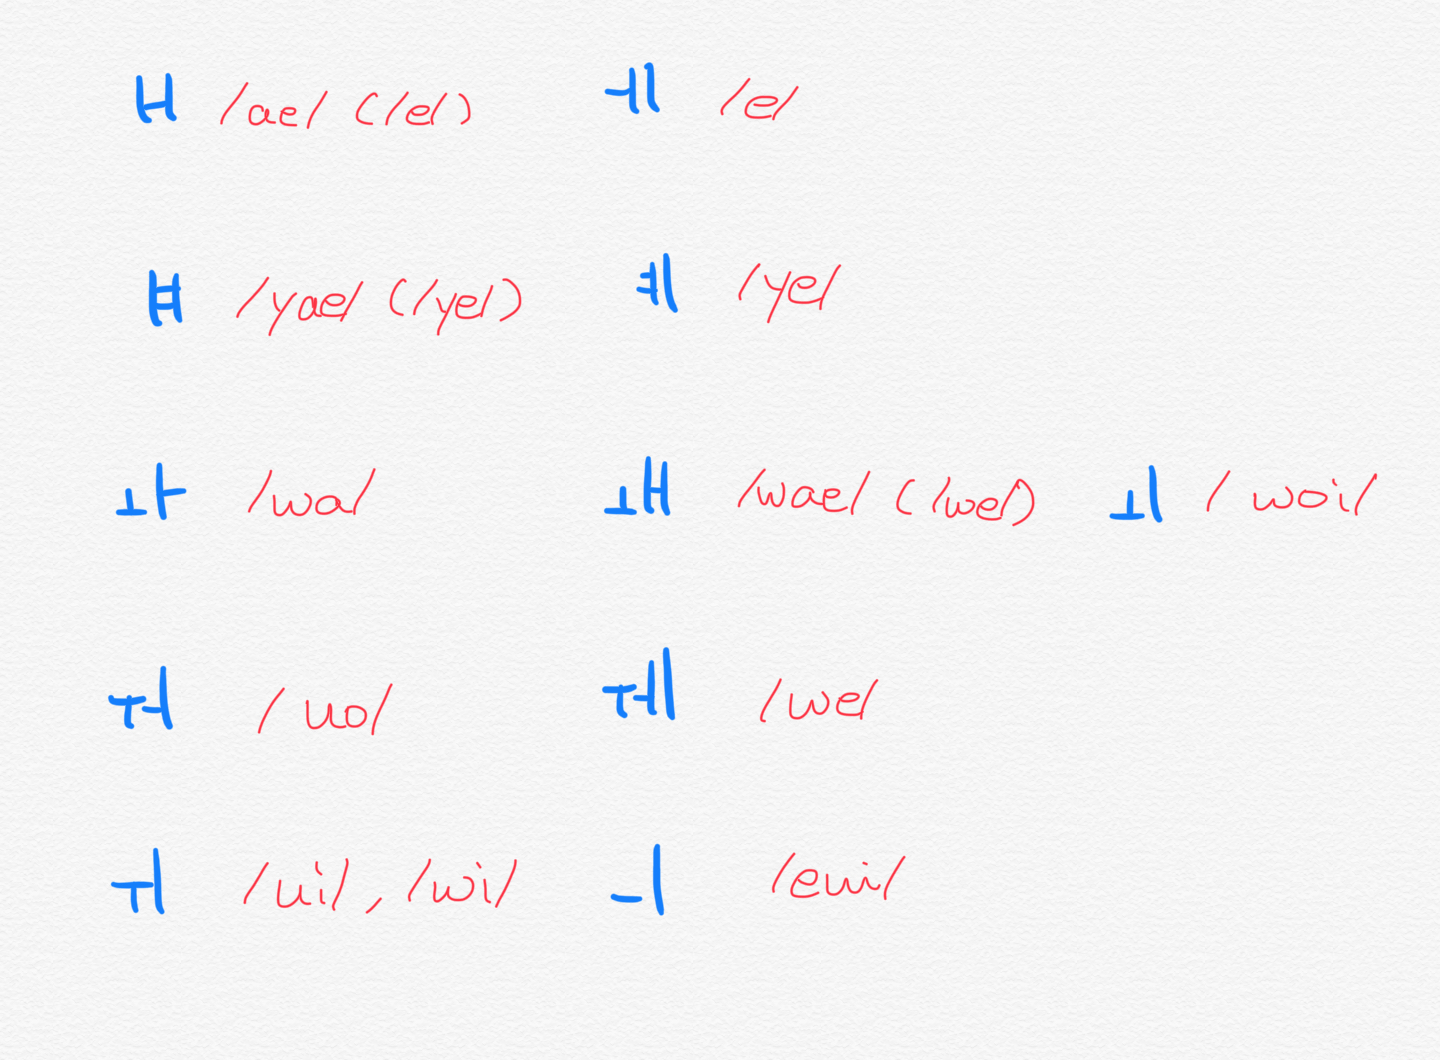 ㅐ /ae/ (/e/) ㅔ /e/
ㅒ /yae/ (/ye/) ㅖ /ye/
ㅘ /wa/ ㅙ /wae/ (/we/) ㅚ / woi/
ㅝ / uo/ ㅞ /we/
ㅟ /ui/, /wi/ ㅢ /eui/